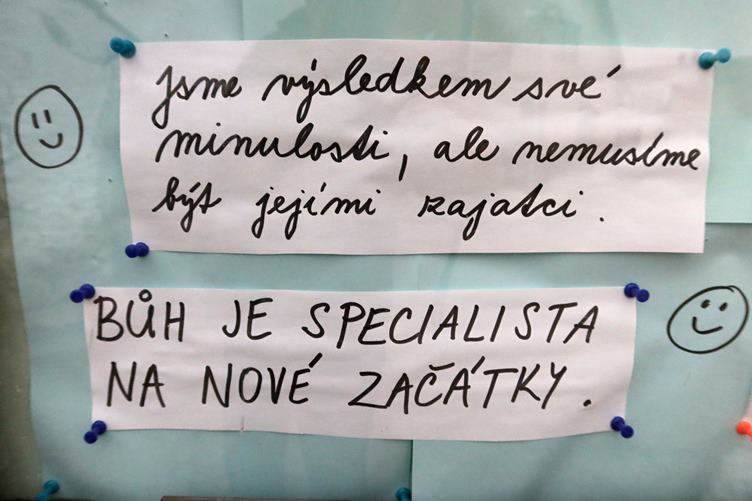 Jsme výsledkem své
minulosti, ale nemusíme
být jejími zajatci.
BŮH JE SPECIALISTA
NA NOVÉ ZAČÁTKY.